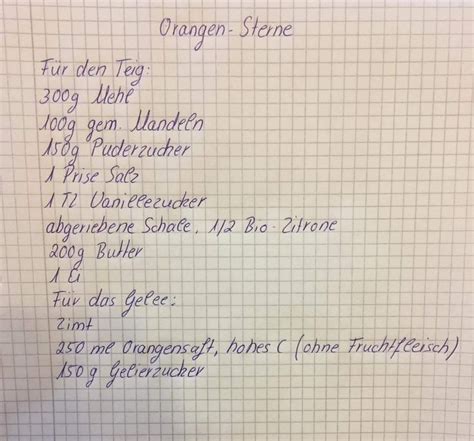 Orangen-Sterne
Für den Teig:
300g Mehl
100g gem. Mandeln
150g Puderzucker
1 Prise Salz
1 TL Vanillezucker
abgeriebene Schale, 1/2 Bio-Zitrone
200g Butter
1 Ei
Für das Gelee:
Zimt
250 ml Orangensaft, hohes C (ohne Fruchtfleisch)
150 g Gelierzucker